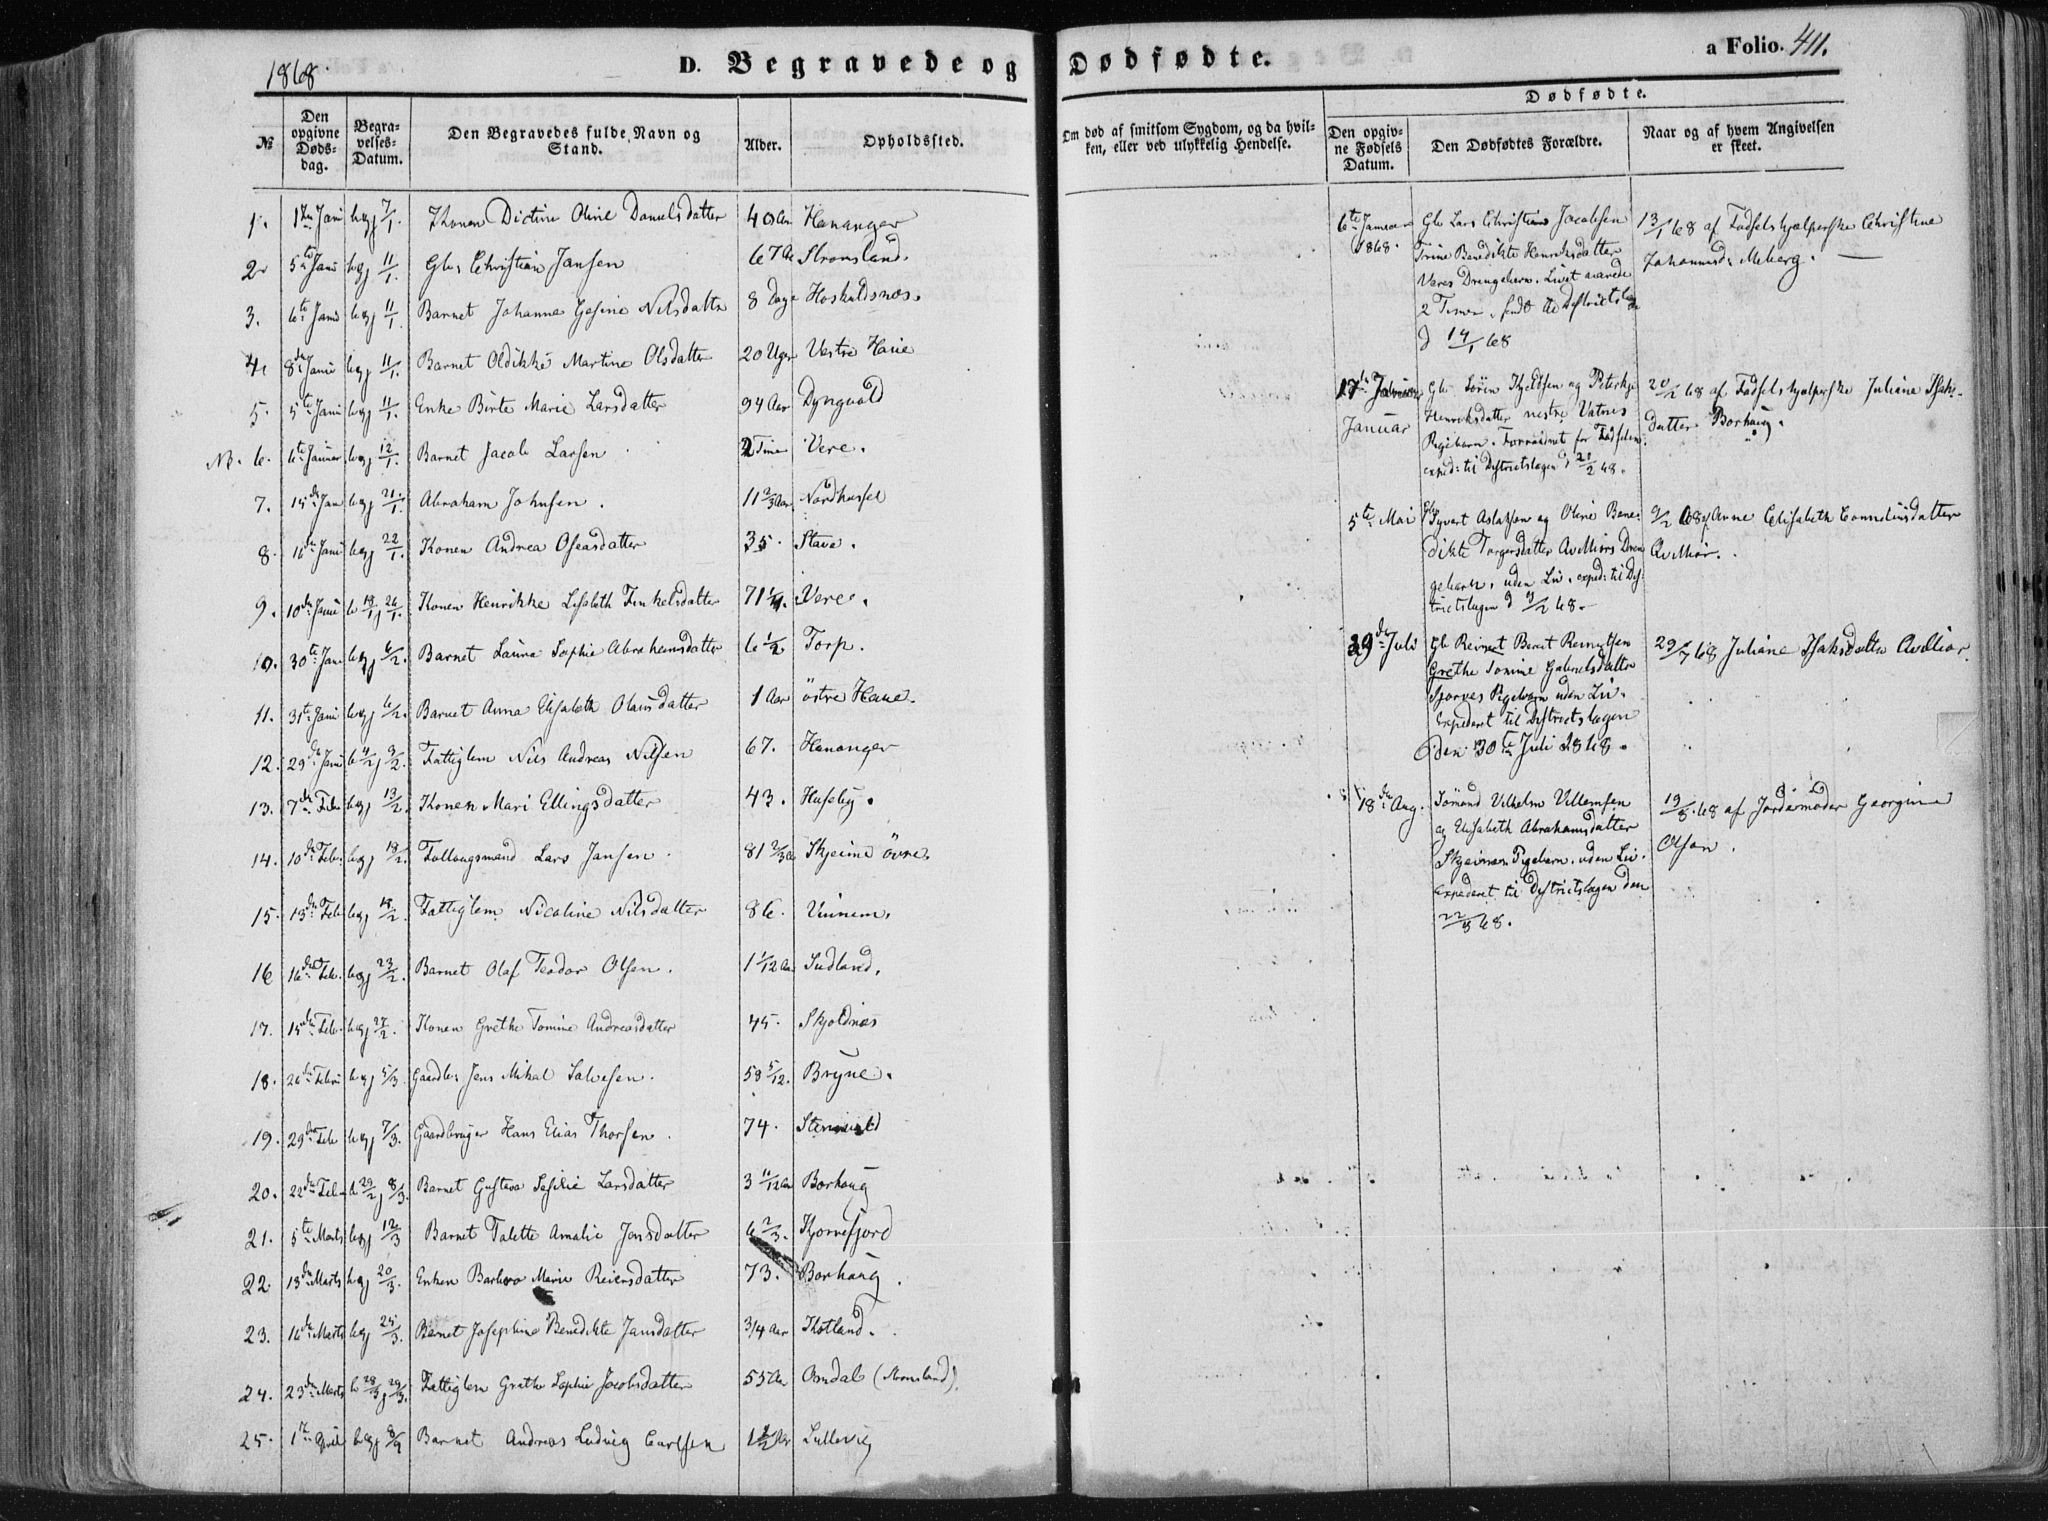 1868.
D. Begravede og Dødfødte.
a Folio. 411.
№
Den opgivne Døds-dag.
Begra-velses-Datum.
Den Begravedes fulde Navn og Stand.
Alder.
Opholdssted.
Om død af smitsom Sygdom, og da hvil-ken, eller ved ulykkelig Hendelse.
Dødfødte.
Den opgiv-ne Fødsels Datum.
Den Dødfødtes Forældre.
Naar og af hvem Angivelsen er skeet.
1. 1ste Janu beg 7/1. Konen Dictine Oline Danielsdatter 40 Aar Hananger
2. 5te Janu beg 11/1. Gbr Christian Jansen 67 Aar Stromsland.
3. 6te Janu beg 11/1. Barnet Johanne Gesine Nilsdattr 8 Dage Hoskuldsnæs.
4. 8de Janu beg 11/1. Barnet Oldikke Martine Olsdatter 20 Uger Vestre Haue
5. 5te Janu beg 11/1. Enke Birte Marie Larsdatter 94 Aar Dyngvold
6. 6te Januar beg 12/1. Barnet Jacob Larsen 2 Time Vere.
7. 15de Jan beg 21/1. Abraham Johnsen. 11 2/3 Aar Nordhassel
8. 16de Janu beg 22/1. Konen Andrea Oseasdatter 35. Stave.
9. 10de Janu b 19/1 j 26/1. Konen Henrikke Lisabeth Tenkelsdatter 71 1/4. Vere.
10. 30te Jan beg 6/2. Barnet Laura Sophie Abrahamsdatter 6 1/2 Torp.
11. 31te Janu beg 6/2. Barnet Anna Elisabeth Olausdatter 1 Aar östre Haue.
12. 29de Janu b 4/2 j 9/2. Fattiglem Nils Andreas Nilsen 67. Hananger
13. 7de Febr beg 13/2. Konen Mari Ellingsdatter 43. Huseby.
14. 10de Febr. beg 18/2. Follaugsmand Lars Jansen. 81 2/3 A Skjeime övre.
15. 13de Feb beg 18/2. Fattiglem Nicoline Nilsdatter 86. Vinnem.
16 16de Feb. beg 23/2. Barnet Olaf Teodor Olsen. 1 1/12 Aar Sudland.
17. 15de Feb. beg 27/2. Konen Grethe Tomine Andreasdatter 45. Skjoldnæs
18. 26de Febr beg 5/3. Gaardbr. Jens Mikal Salvesen. 58 5/12. Bryne.
19. 29de Feb beg 7/3. Gaardbruger Hans Elias Thorsen. 74.
20. 22de Feb b 29/2 j 8/3. Barnet Gustava Sesilie Larsdatter 3 11/12 Aar Borhaug
21. 5te Marts beg 12/3 Barnet Talette Amalie Jensdatter 6 2/3. Kjørrefjord
22. 13de Marts beg 20/3. Enken Barbro Marie Reiersdatter 73. Borhaug.
23. 16de Marts beg 25/3. Barnet Josephine Benedikte Jansdatter 3/4 Aar Kotland.
24. 23de Marts b 28/3 j 29/3. Fattiglem Grethe Sophie Jacobsdatter 55 Aar Omdal (Stromsland).
25. 1ste April beg 8/4 Barnet Andreas Ludvig Carlsen 1 1/2 Aar Lullevig
6te Januar 1868.
Gbr Lars Christian Jacobsen
Trine Benedikte Henriksdatter
Veres Drengebarn. Livet varede
2 Timer. sendt
d 14/1 68
13/1 68 af Fødselshjælperske Christine
Johannesd: Meberg.
17de Januar
Gbr Sören Kjeldsen og Peterkje
Henriksdatter nestre Vatnes
Pigebarn. Forraadnet for Fødselen.
exped: til Districtslægen d 21/2 68.
20/2 68 af Fødselshjælperske Juliane Isaks-
datter Borhaug.
5te Mai
Gbr Syvert Aslaksen og Oline Bene-
dikte Torgersdatter Ovellörs Dren-
gebarn. uden Liv. exped: til Dis-
trictslægen d 9/2 68.
9/2 68 af Anne Elisabeth Corneliusdatter
29de Juli
Gbr Reinert Bernt Reinertsen
Grethe Tomine Gabrielsdatter
Pigebarn uden Liv.
Expederet til Districtslægen
den 30te Juli 1868.
29/7 68 Juliane Isaksdatter
18de Aug.
Sömand Vilhelm Villemsen
og Elisabeth Abrahamsdatter
Skjeimes Pigebarn. uden Liv.
Expederet til Districtslægen den
22/8 68.
19/8. 68 af Jordemoder Georgine
Olsen.